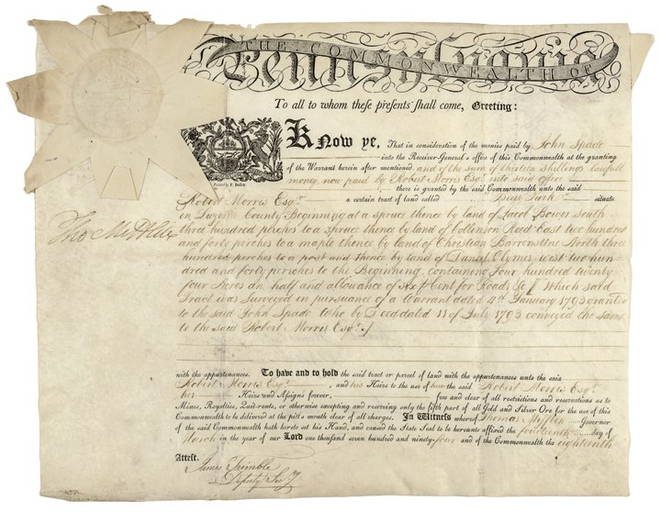 THE COMMONWEALTH OF
Pennsylvania
To all to whom these presents shall come, Greeting:
Know ye, That in consideration of the monies paid by John Spade
into the Receiver-General's office of this Commonwealth at the granting
of the Warrant herein after mentioned and of the sum of thirteen Shillings lawfull
money now paid by Robert Morris Esqr. into said office
there is granted by the said Commonwealth unto the said
Robert Morris Esqr. a certain tract of land called Park situate
in Luzerne County Beginning at a spruce thence by land of Jacob Bower South
three hundred perches to a spruce thence by land of Collenson Reed East two hundred
and forty perches to a maple thence by land of Christian North three
hundred perches to a post and thence by land of Daniel Clymer west two hun
dred and forty perches to the Beginning, containing Four hundred twenty
four Acres an half and allowance of six Cent for Roads &c. Which said
Tract was Surveyed in pursuance of a Warrant dated 4th January 1793 granted
to the said John Spade Who by Deed dated 11 of July 1793 conveyed the same
to the said Robert Morris Esqr.
Tho Mifflin
with the appurtenances. To have and to hold the said tract or parcel of land with the appurtenances unto the said
Robert Morris Esqr. and his Heirs to the use of him the said Robert Morris Esqr.
his Heirs and Assigns forever, free and clear of all restrictions and reservations as to
Mines, Royalties, Quit-rents, or otherwise excepting and reserving only the fifth part of all Gold and Silver Ore for the use of this
Commonwealth to be delivered at the pit's mouth clear of all charges. In Witness whereof Thomas Mifflin Governor
of the said Commonwealth hath hereto set his Hand, and caused the State Seal to be hereunto affixed the fourteenth day of
March in the year of our Lord one thousand seven hundred and ninety-four and of the Commonwealth the eighteenth
Attest.
James Trimble
Deputy Secy